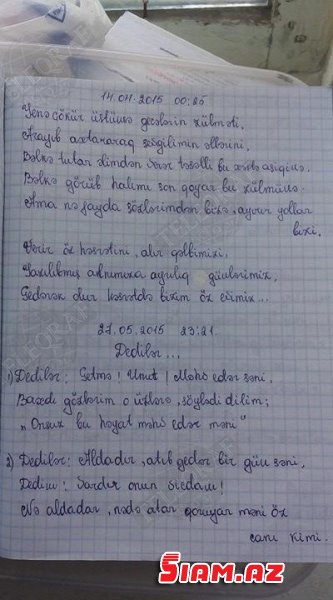 14.04.2015 00:25
Yenə çökür üstümə gecələrin zülməti,
Arayıb axtararaq sevgilimin əllərini,
Bəlkə tutar əlimdən verər təsəlli bu xəstə aşiqinə,
Bəlkə görüb halımı son qoyar bu zülmünə.
Ama nə fayda sözlərimdən bizə, ayırır yollar
bizi,
Verir öz həsrətini, alır qəlbimizi,
Yazılıbmış alnımıza ayrılıq günlərimiz,
Gedərək olur həsrətdə bizim öz evimiz...
27.05.2015 23:21.
Dedilər...
1) Dedilər: Getmə! Unut! Məhv edər səni.
Baxdı gözlərim o üzlərə, söylədi dilim;
"Onsuz bu həyat məhv edər məni"
2) Dedilər: Aldadır, atıb gedər bir gün səni,
Dedim: Vardır onun vicdanı!
Nə aldadar, nədə atar qoruyar məni öz
canı kimi.
SIAM.AZ